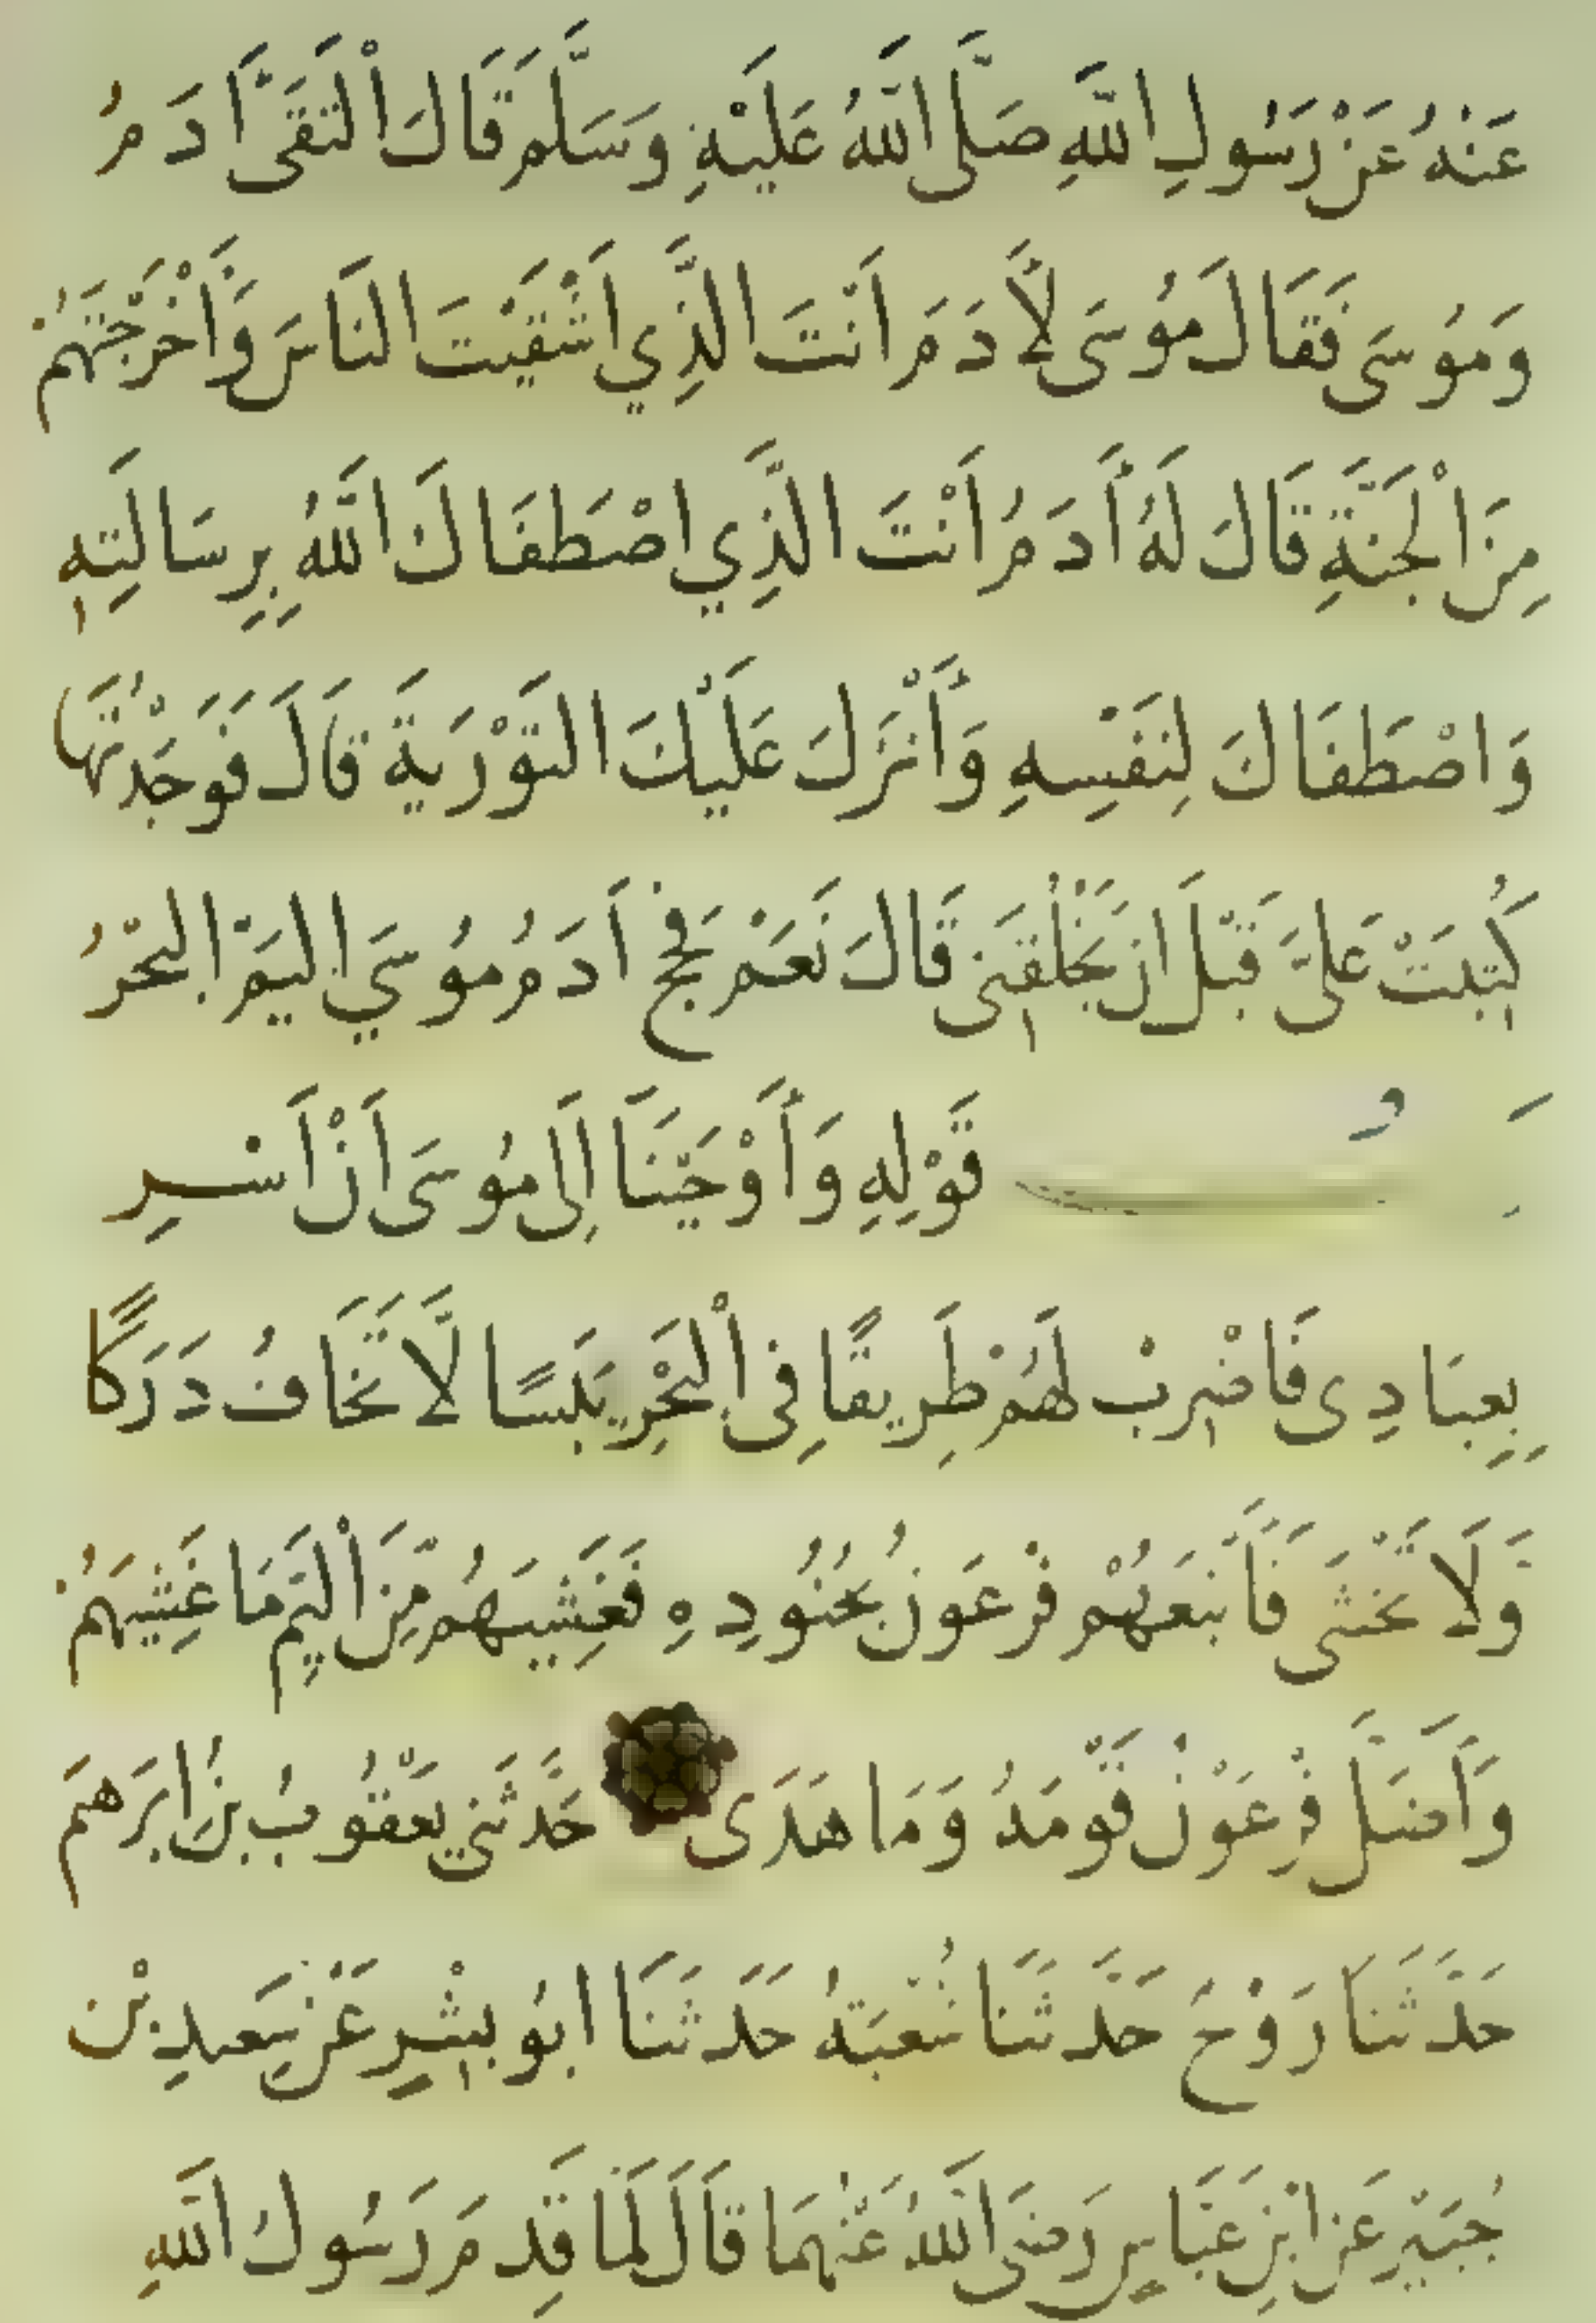 عَنْهُ عَنْ رَسُولِ اللَّهِ صَلَّى اللَّهُ عَلَيْهِ وَسَلَّم قَالَ الْتَقَى آدَمُ
وَمُوسَى فَقَالَ مُوسَى لِآدَمَ أَنْتَ الَّذِي أَشْقَيْتَ النَّاسَ وَأَخْرَجْتَهُمْ
مِنَ الْجَنَّةِ قَالَ لَهُ أَدَمُ أَنْتَ الَّذِي اصْطَفَاكَ اللَّهُ بِرِسَالَتِهِ
وَاصْطَفَاكَ لِنَفْسِهِ وَأَنْزَلَ عَلَيْكَ التَّوْرَيةَ قَالَ فَوَجَدْتُهَا
كُتِبَتْ عَلَيَّ قَبْلَ أَنْ يَخْلُقَنِي قَالَ نَعَمْ فَحَجَّ آدَمُ مُوسَي الْيَمُّ الْبَحْرُ
قَوْلِهِ وَأَوْحَيْنَا إِلَى مُوسَى أَنْ أَسْرِ
بِعِبَادِى فَاضْرِبْ لَهُمْ طَرِيقًا فِى الْبَحْرِ يَبَسًا لَّا تَخَافُ دَرَكًا
وَّلَا تَخْشَى فَأَتْبَعَهُمْ فِرْعَوْنُ بِجُنُودِهِ فَغَشِيَهُمْ مِّنَ الْيَمِّ مَا غَشِيَهُمْ
وَأَضَلَّ فِرْعَوْنُ قَوْمَهُ وَمَا هَدَى حَدَّثَنِي يَعْقُوبُ بْنُ إِبْرَهِمَ
حَدَّثَنَا رَوْحٌ حَدَّثَنَا شُعْبَةُ حَدَّثَنَا ابُو بِشْرٍ عَنْ سَعِيدِ بْنِ
جُبَيْرٍ عَنِ ابْنِ عَبَّاسٍ رَضِىَ اللَّهُ عَنْهُمَا قَالَ لَمَّا قَدِمَ رَسُولُ اللَّهِ